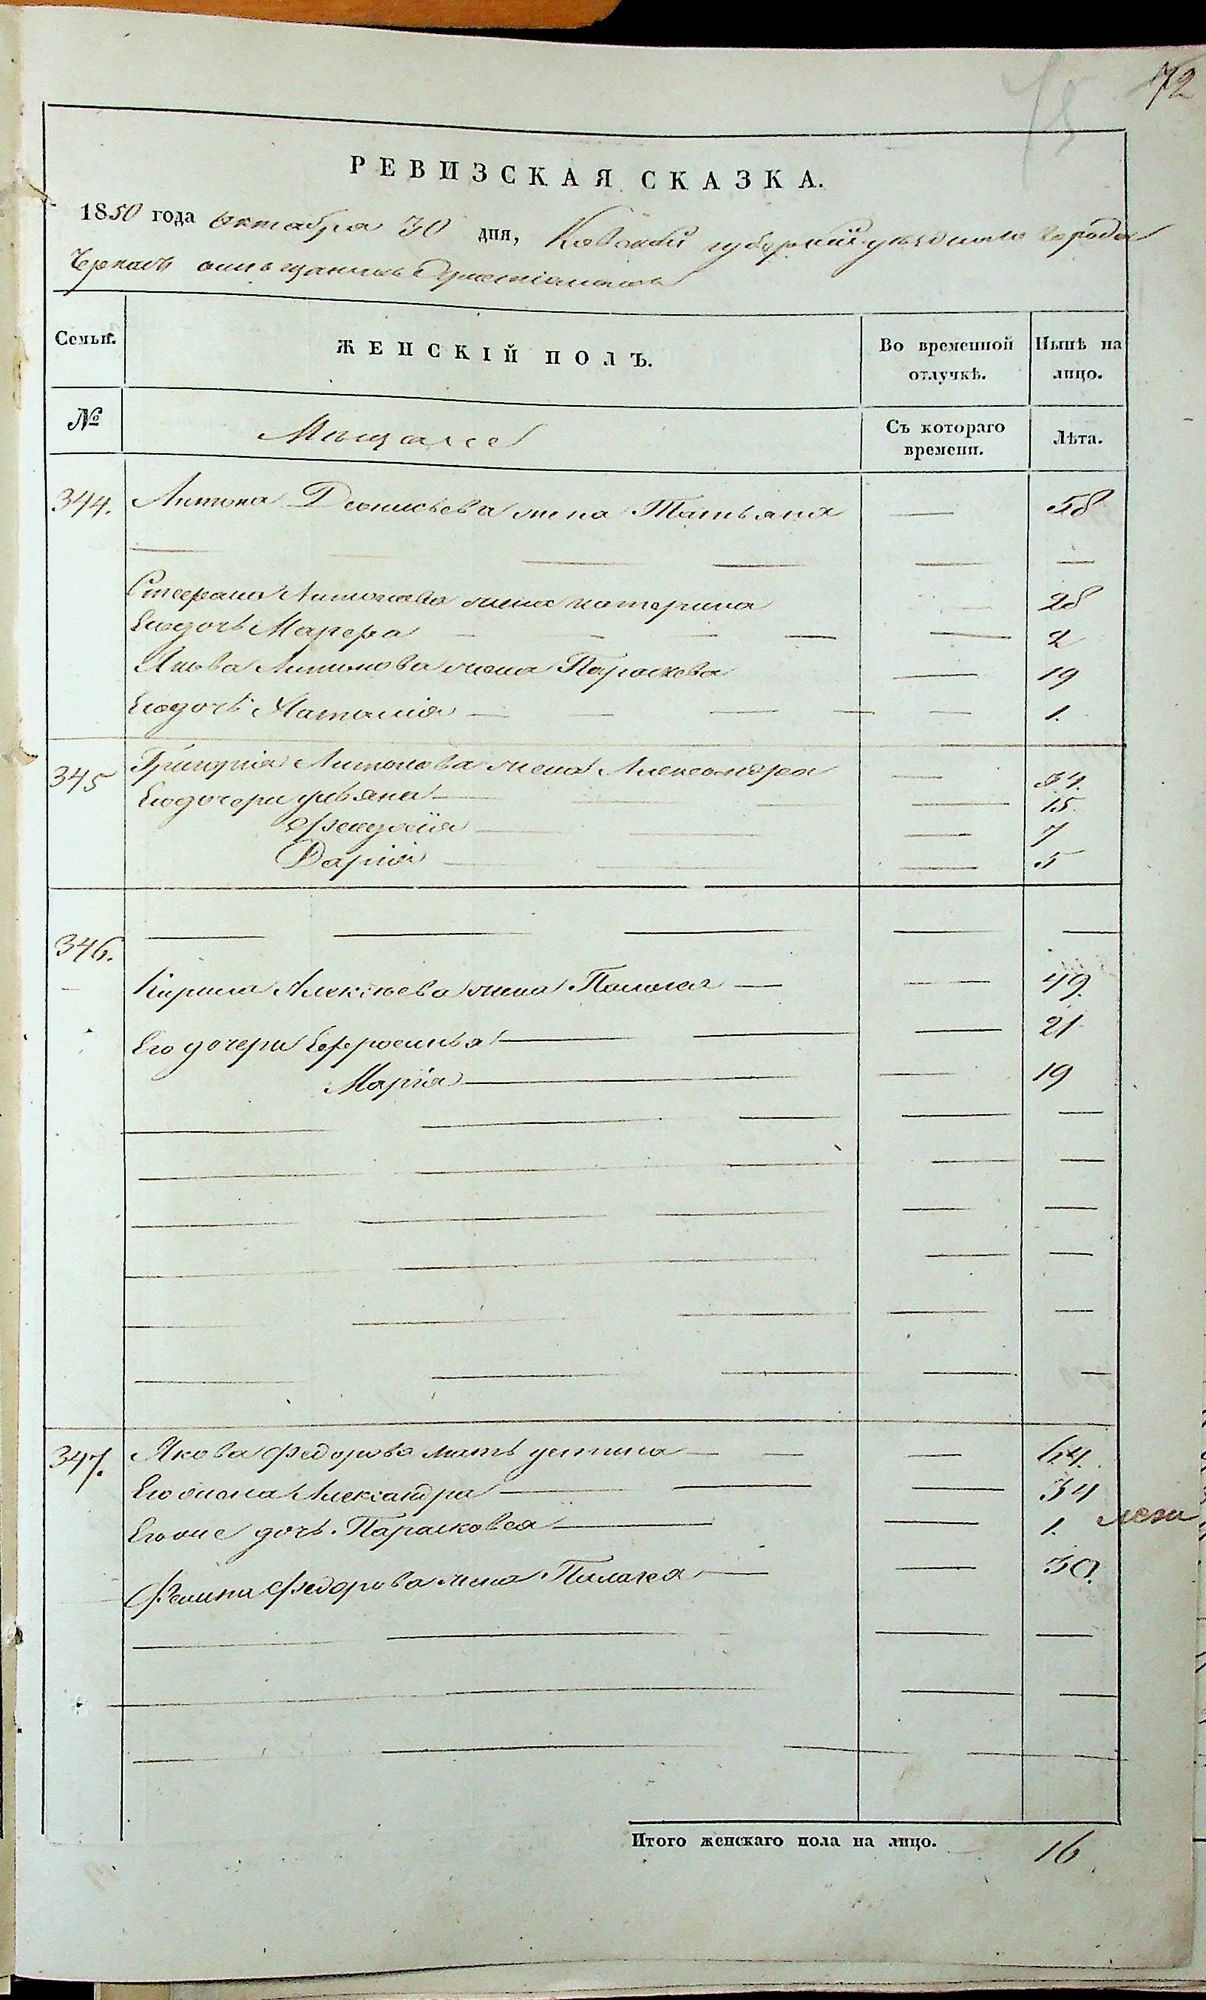 72
75
РЕВИЗСКАЯ СКАЗКА.
1850 года октября 30 дня, Киевской губернии уездного города
Черкасъ о мещанахъ Христіанахъ
Семьи.
ЖЕНСКІЙ ПОЛЪ.
Во временной отлучкѣ.
Нынѣ на лицо.
№
Мещане
Съ котораго времени.
Лѣта.
344. Антона Деонисьева жена Татьяна — 58
Стефана Антонова жена Катерина — 28
Его дочь Марфа — 2
Якова Антонова жена Парасковя — 19
Его дочь Наталия — 1.
345 Григория Антонова жена Александра — 34.
Его дочери Ульяна — 15
Феодосія — 7
Дарія — 5
346.
Кирила Алексеева жена Палагея — 49.
Его дочери Ефросинья — 21
Марія — 19
347. Якова Федорова мать Устина — 64.
Его жена Александра — 34
Его же дочь Парасковея — 1.
Филипа Федорова жена Палагея — 30.
Итого женскаго пола на лицо. 16